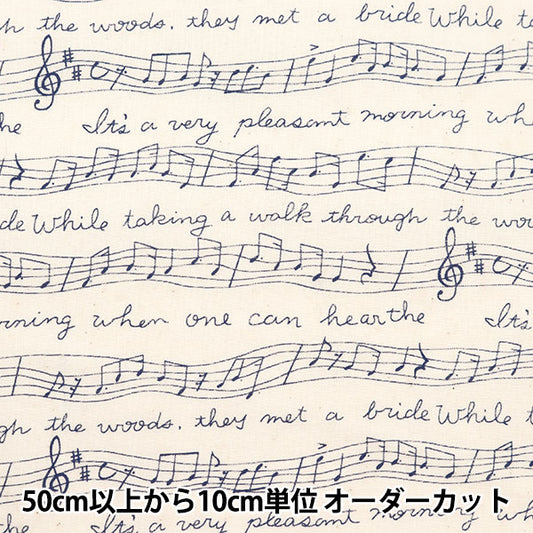 h the woods. they met a bride While ta
he It's a very pleasant morning wh
de While taking a walk through the woo
orning when one can hear the It's
gh the woods. they met a bride While t
50cm以上から10cm単位 オーダーカット
he It's a very pleasant morning wh